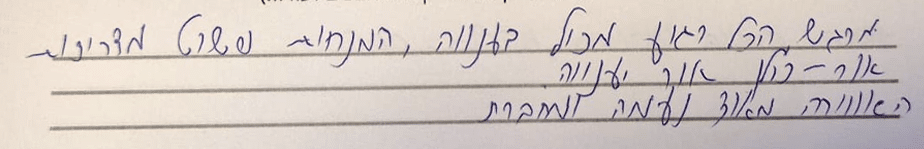 מרגש הכל רגוע מכיל בענווה, המנחות פשוט מדריכות
אור - כולן אור וענווה
האווירה מאוד נעימה ומחברת